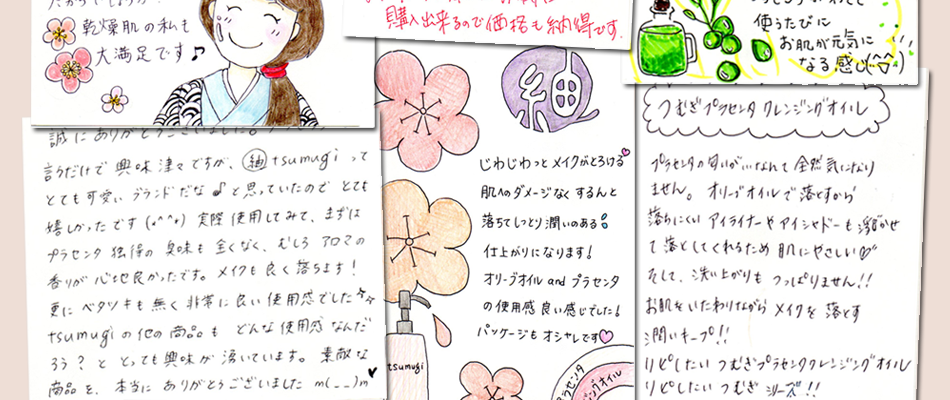 乾燥肌の私も
大満足です♪
購入出来るので価格も納得です。
使うたびに
お肌が元気に
なる感じ(^^)
誠にありがとうございました。
言うだけで興味津々ですが、紬tsumugiって
とても可愛いブランドだな♪と思っていたのでとても
嬉しかったです(*^^*) 実際使用してみて、まずは
プラセンタ独得の臭味も全くなく、むしろアロマの
香りが心地良かったです。メイクも良く落ちます!
更にベタツキも無く非常に良い使用感でした
tsumugiの他の商品もどんな使用感なんだ
ろう?ととっても興味が湧いています。素敵な
商品を、本当にありがとうございましたm(__)m♥
紬
じわじわっとメイクがとろける♥
肌へのダメージなくするんと
落ちてしっとり潤いのある
仕上がりになります!
オリーブオイルandプラセンタ
の使用感良い感じでした!
パッケージもオシャレです♥
tsumugi
プラセンタ
ングオイル
つむぎプラセンタクレンジングオイル
プラセンタの匂いがいなんて全然気になり
ません。オリーブオイルで落とすから
落ちにくいアイライナーやアイシャドーも浮かせ
て落としてくれるため肌にやさしい♡
そして、洗い上がりもつっぱりません!!
お肌をいたわりながらメイクを落とす
潤いキープ!!
リピしたいつむぎプラセンタクレンジングオイル
リピしたいつむぎシリーズ!!